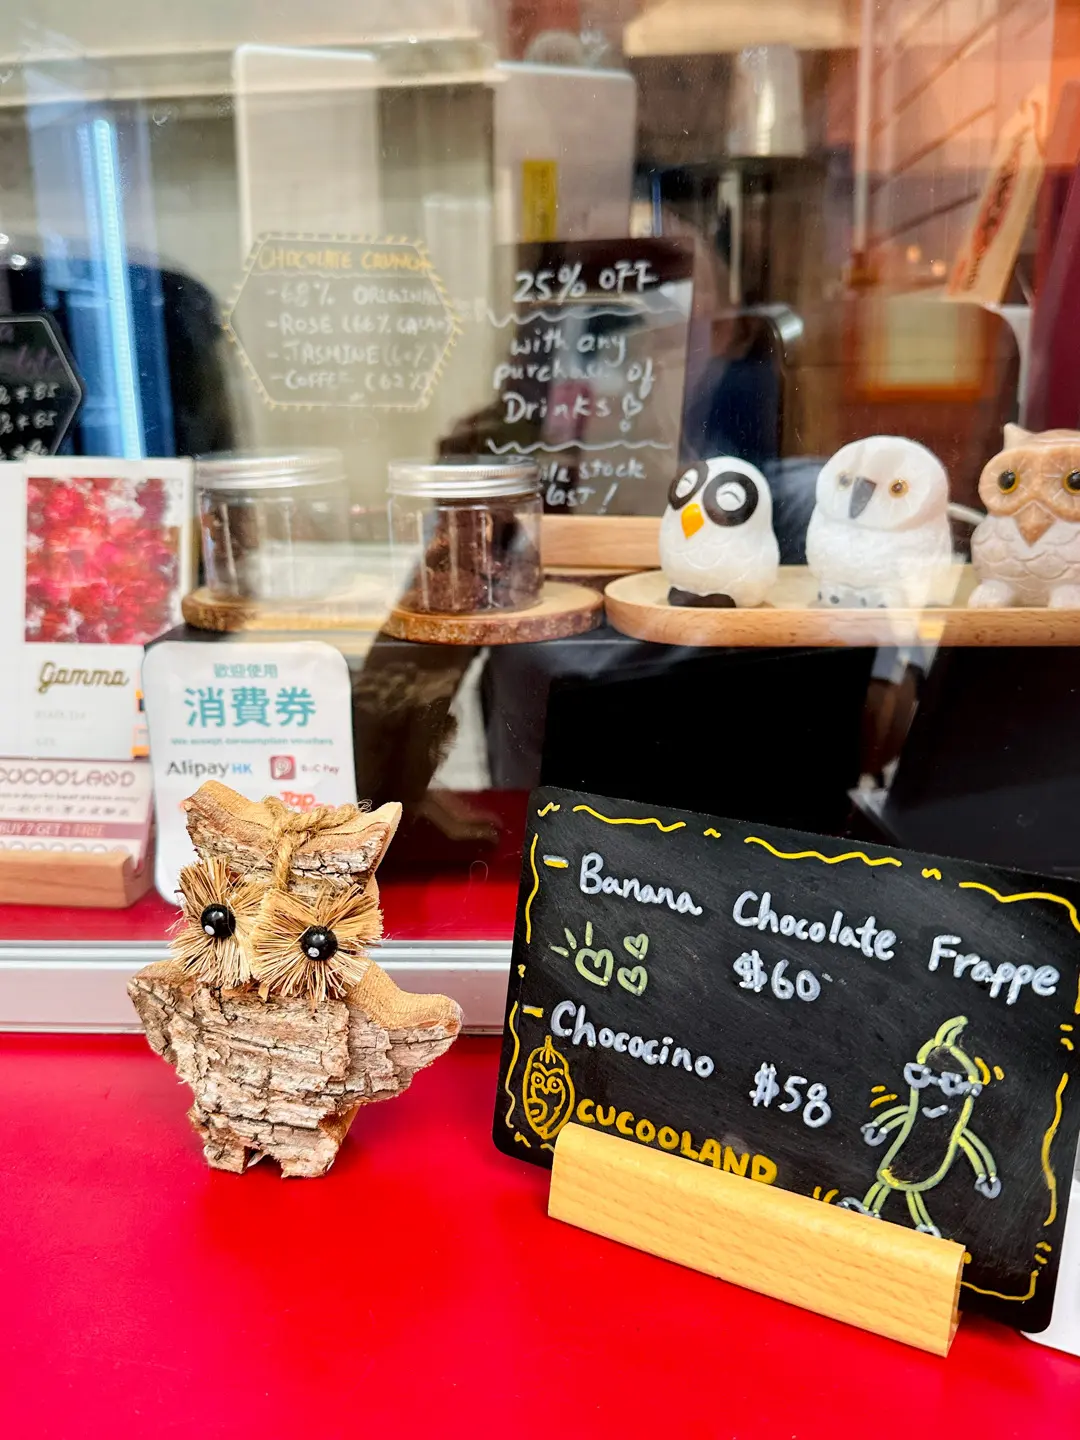 CHOCOLATE CRUNCH
- 68% ORIGINAL
- ROSE (66% CACAO)
- JASMINE (60%)
- COFFEE (62%)
25% OFF
with any
purchase of
Drinks
while stock
last!
$85
$85
Gamma
歡迎使用
消費券
We accept consumption vouchers
AlipayHK
BoC Pay
Tap
CUCOOLAND
BUY 7 GET 1 FREE
- Banana Chocolate Frappe
$60
- Chococino $58
CUCOOLAND